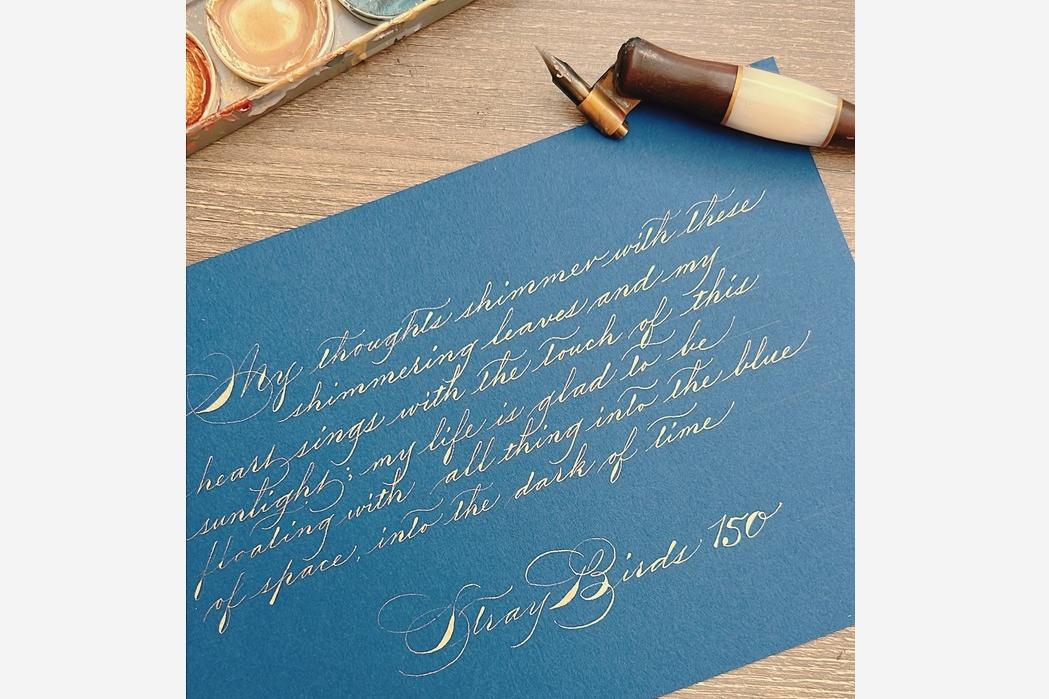 My thoughts shimmer with these
shimmering leaves and my
heart sings with the touch of this
sunlight; my life is glad to be
floating with all thing into the blue
of space, into the dark of time
Stray Birds 150